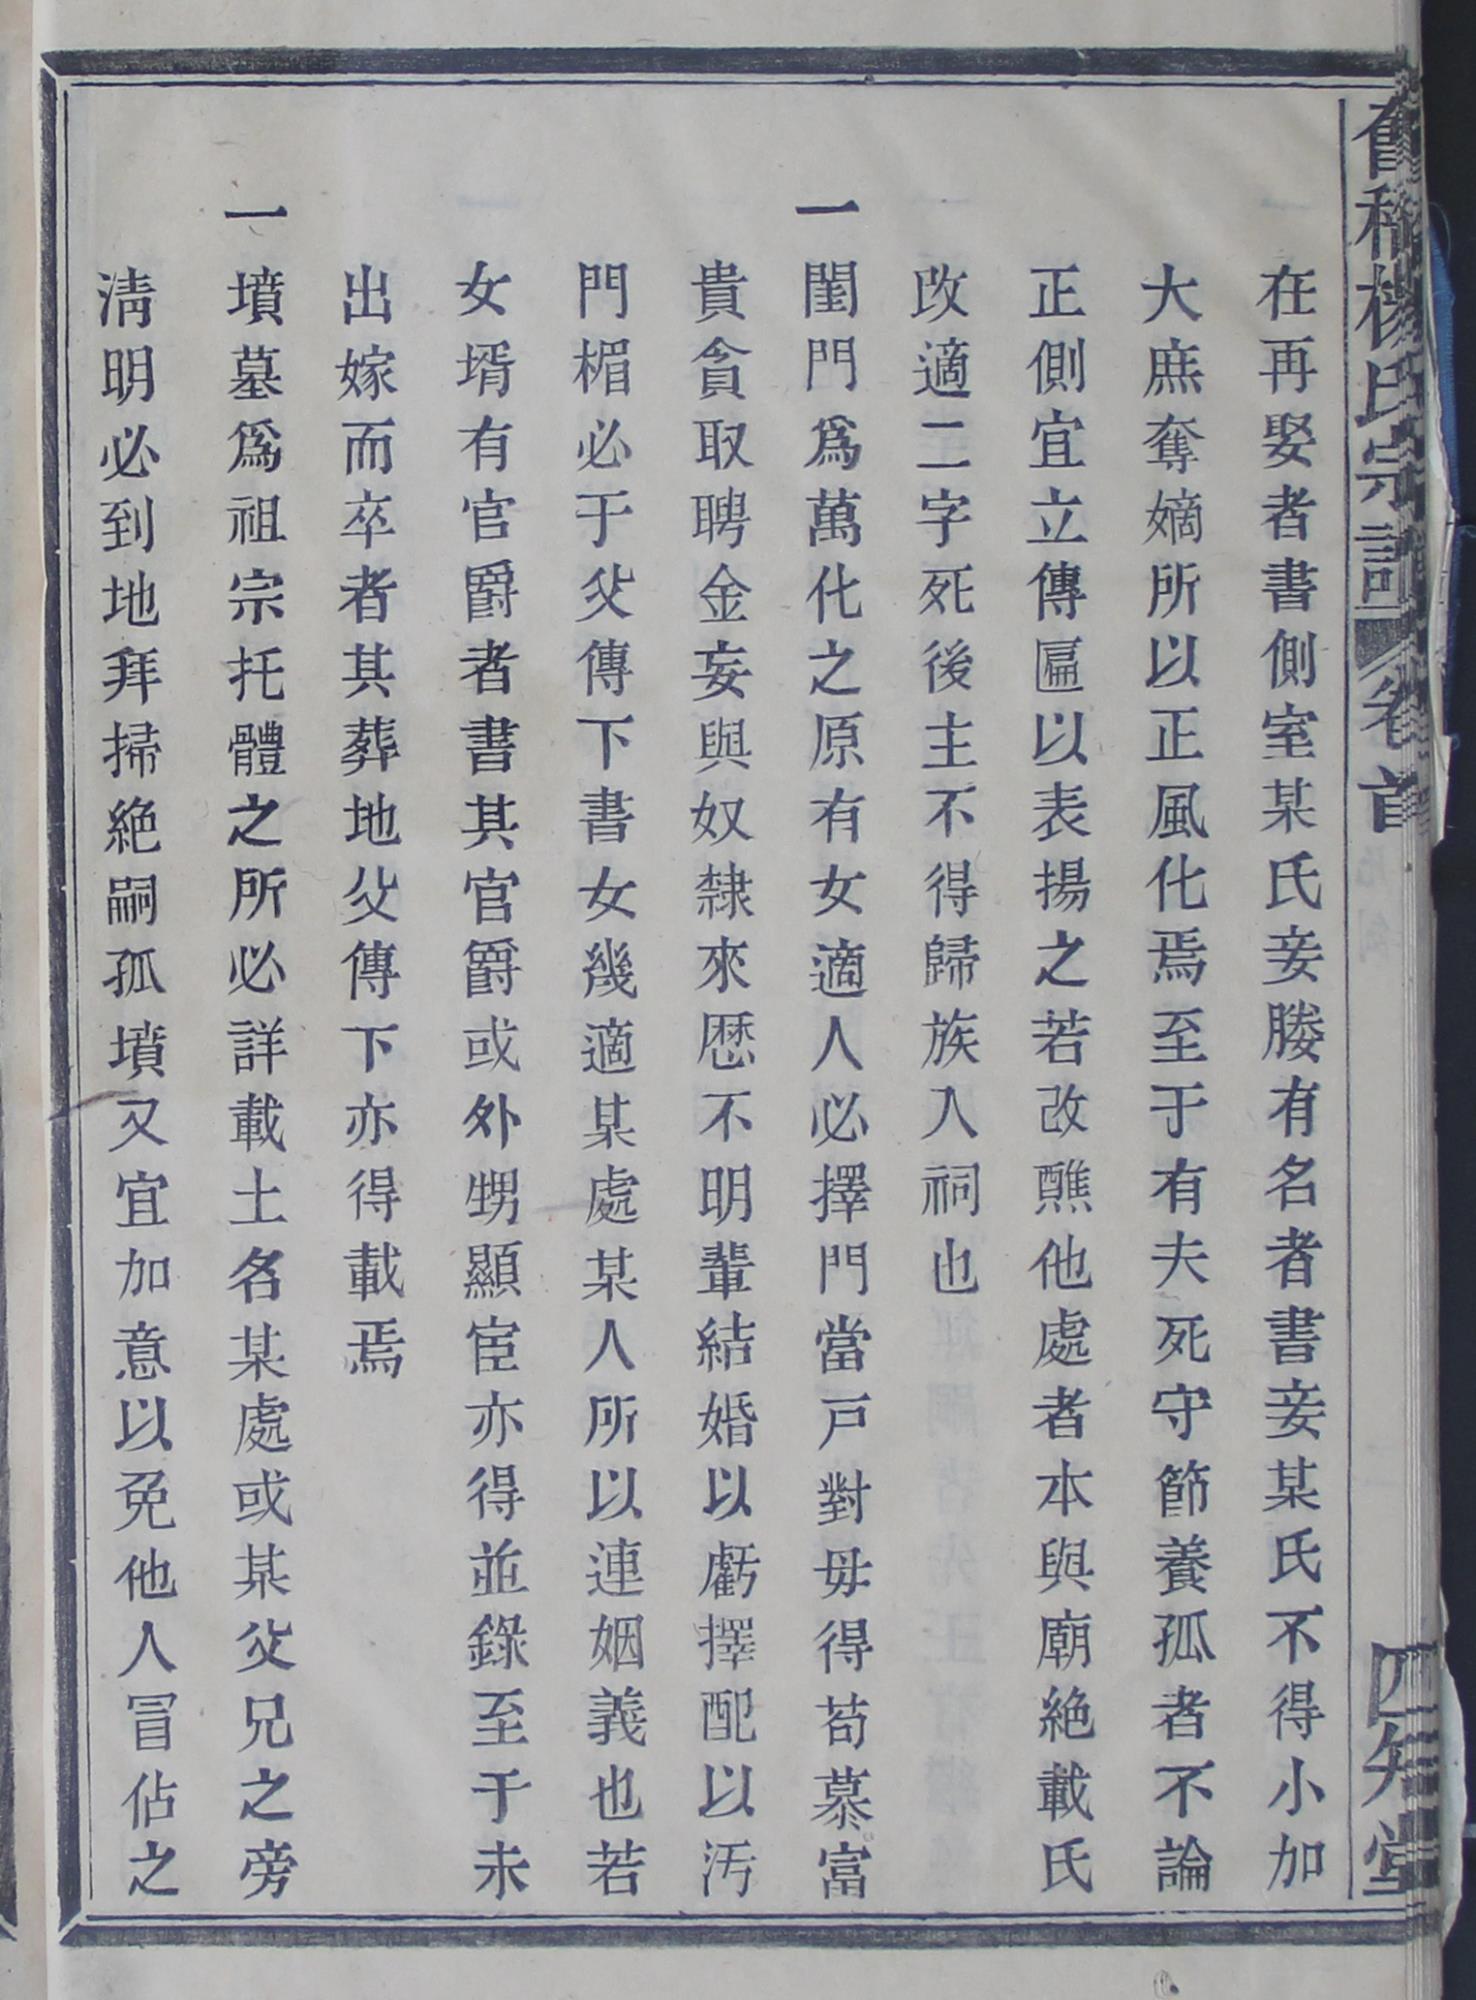 舊稽楊氏宗譜 卷首 四知堂
在再娶者書側室某氏妾媵有名者書妾某氏不得小加
大庶奪嫡所以正風化焉至于有夫死守節養孤者不論
正側宜立傳匾以表揚之若改醮他處者本與廟絶載氏
改適二字死後主不得歸族入祠也
一閨門爲萬化之原有女適人必擇門當戸對毋得苟慕富
貴貪取聘金妄與奴隸來歷不明輩結婚以虧擇配以汚
門楣必于父傳下書女幾適某處某人所以連姻義也若
女壻有官爵者書其官爵或外甥顯宦亦得並錄至于未
出嫁而卒者其葬地父傳下亦得載焉
一墳墓爲祖宗托體之所必詳載土名某處或某父兄之旁
淸明必到地拜掃絶嗣孤墳又宜加意以免他人冒佔之